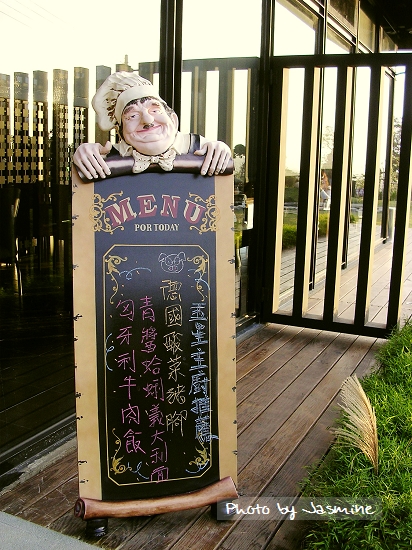 MENU
POR TODAY
五星主廚推薦
德國酸菜豬腳
青醬蛤蜊義大利面
匈牙利牛肉飯
Photo by Jasmine